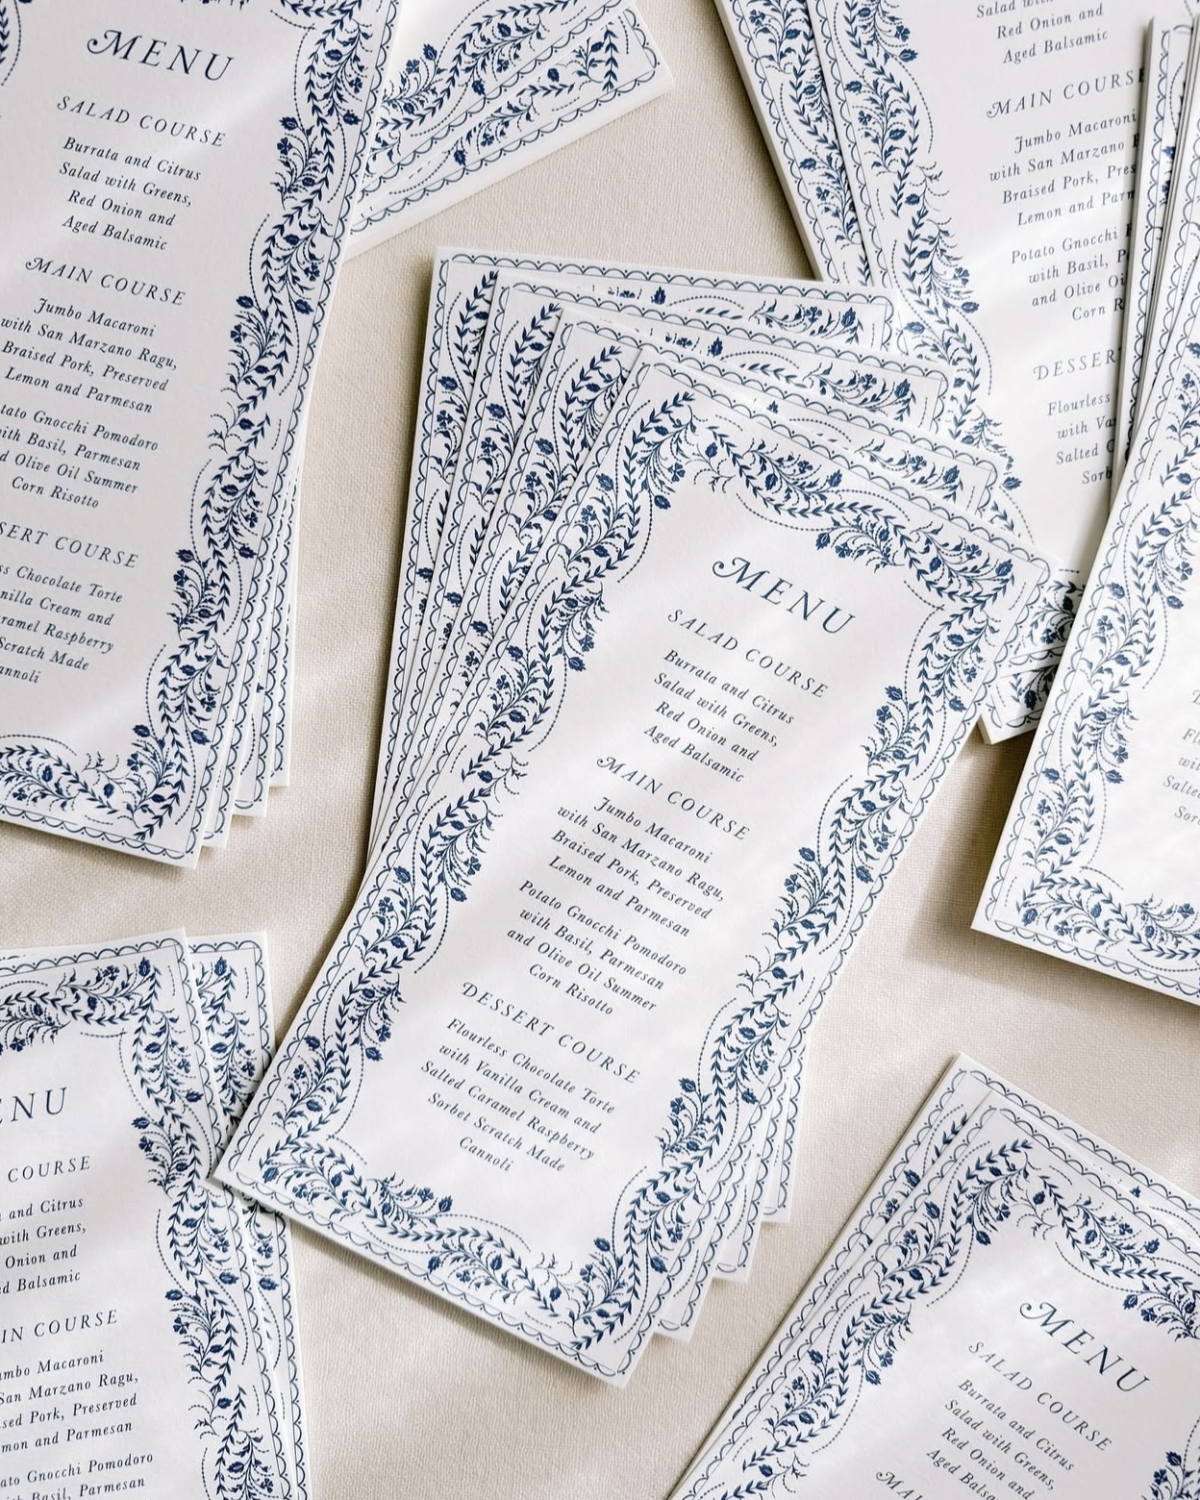 MENU
SALAD COURSE
Burrata and Citrus
Salad with Greens,
Red Onion and
Aged Balsamic
MAIN COURSE
Jumbo Macaroni
with San Marzano Ragu,
Braised Pork, Preserved
Lemon and Parmesan
Gnocchi Pomodoro
with Basil, Parmesan
Olive Oil Summer
Corn Risotto
COURSE
Chocolate Torte
Cream and
Raspberry
Scratch Made
Salad
Red Onion and
Aged Balsamic
MAIN COURSE
Jumbo Macaroni
with San Marzano
Braised Pork,
Lemon and
Potato Gnocchi
with Basil,
and Olive
Corn
Flourless
with
Salted
MENU
SALAD COURSE
Burrata and Citrus
Salad with Greens,
Red Onion and
Aged Balsamic
MAIN COURSE
Jumbo Macaroni
with San Marzano Ragu,
Braised Pork, Preserved
Lemon and Parmesan
Potato Gnocchi Pomodoro
with Basil, Parmesan
and Olive Oil Summer
Corn Risotto
DESSERT COURSE
Flourless Chocolate Torte
with Vanilla Cream and
Salted Caramel Raspberry
Sorbet Scratch Made
Cannoli
COURSE
and Citrus
with Greens,
Onion and
Balsamic
COURSE
Macaroni
San Marzano Ragu,
Pork, Preserved
and Parmesan
Gnocchi Pomodoro
Basil, Parmesan
MENU
SALAD COURSE
Burrata and Citrus
Salad with Greens,
Red Onion and
Aged Balsamic